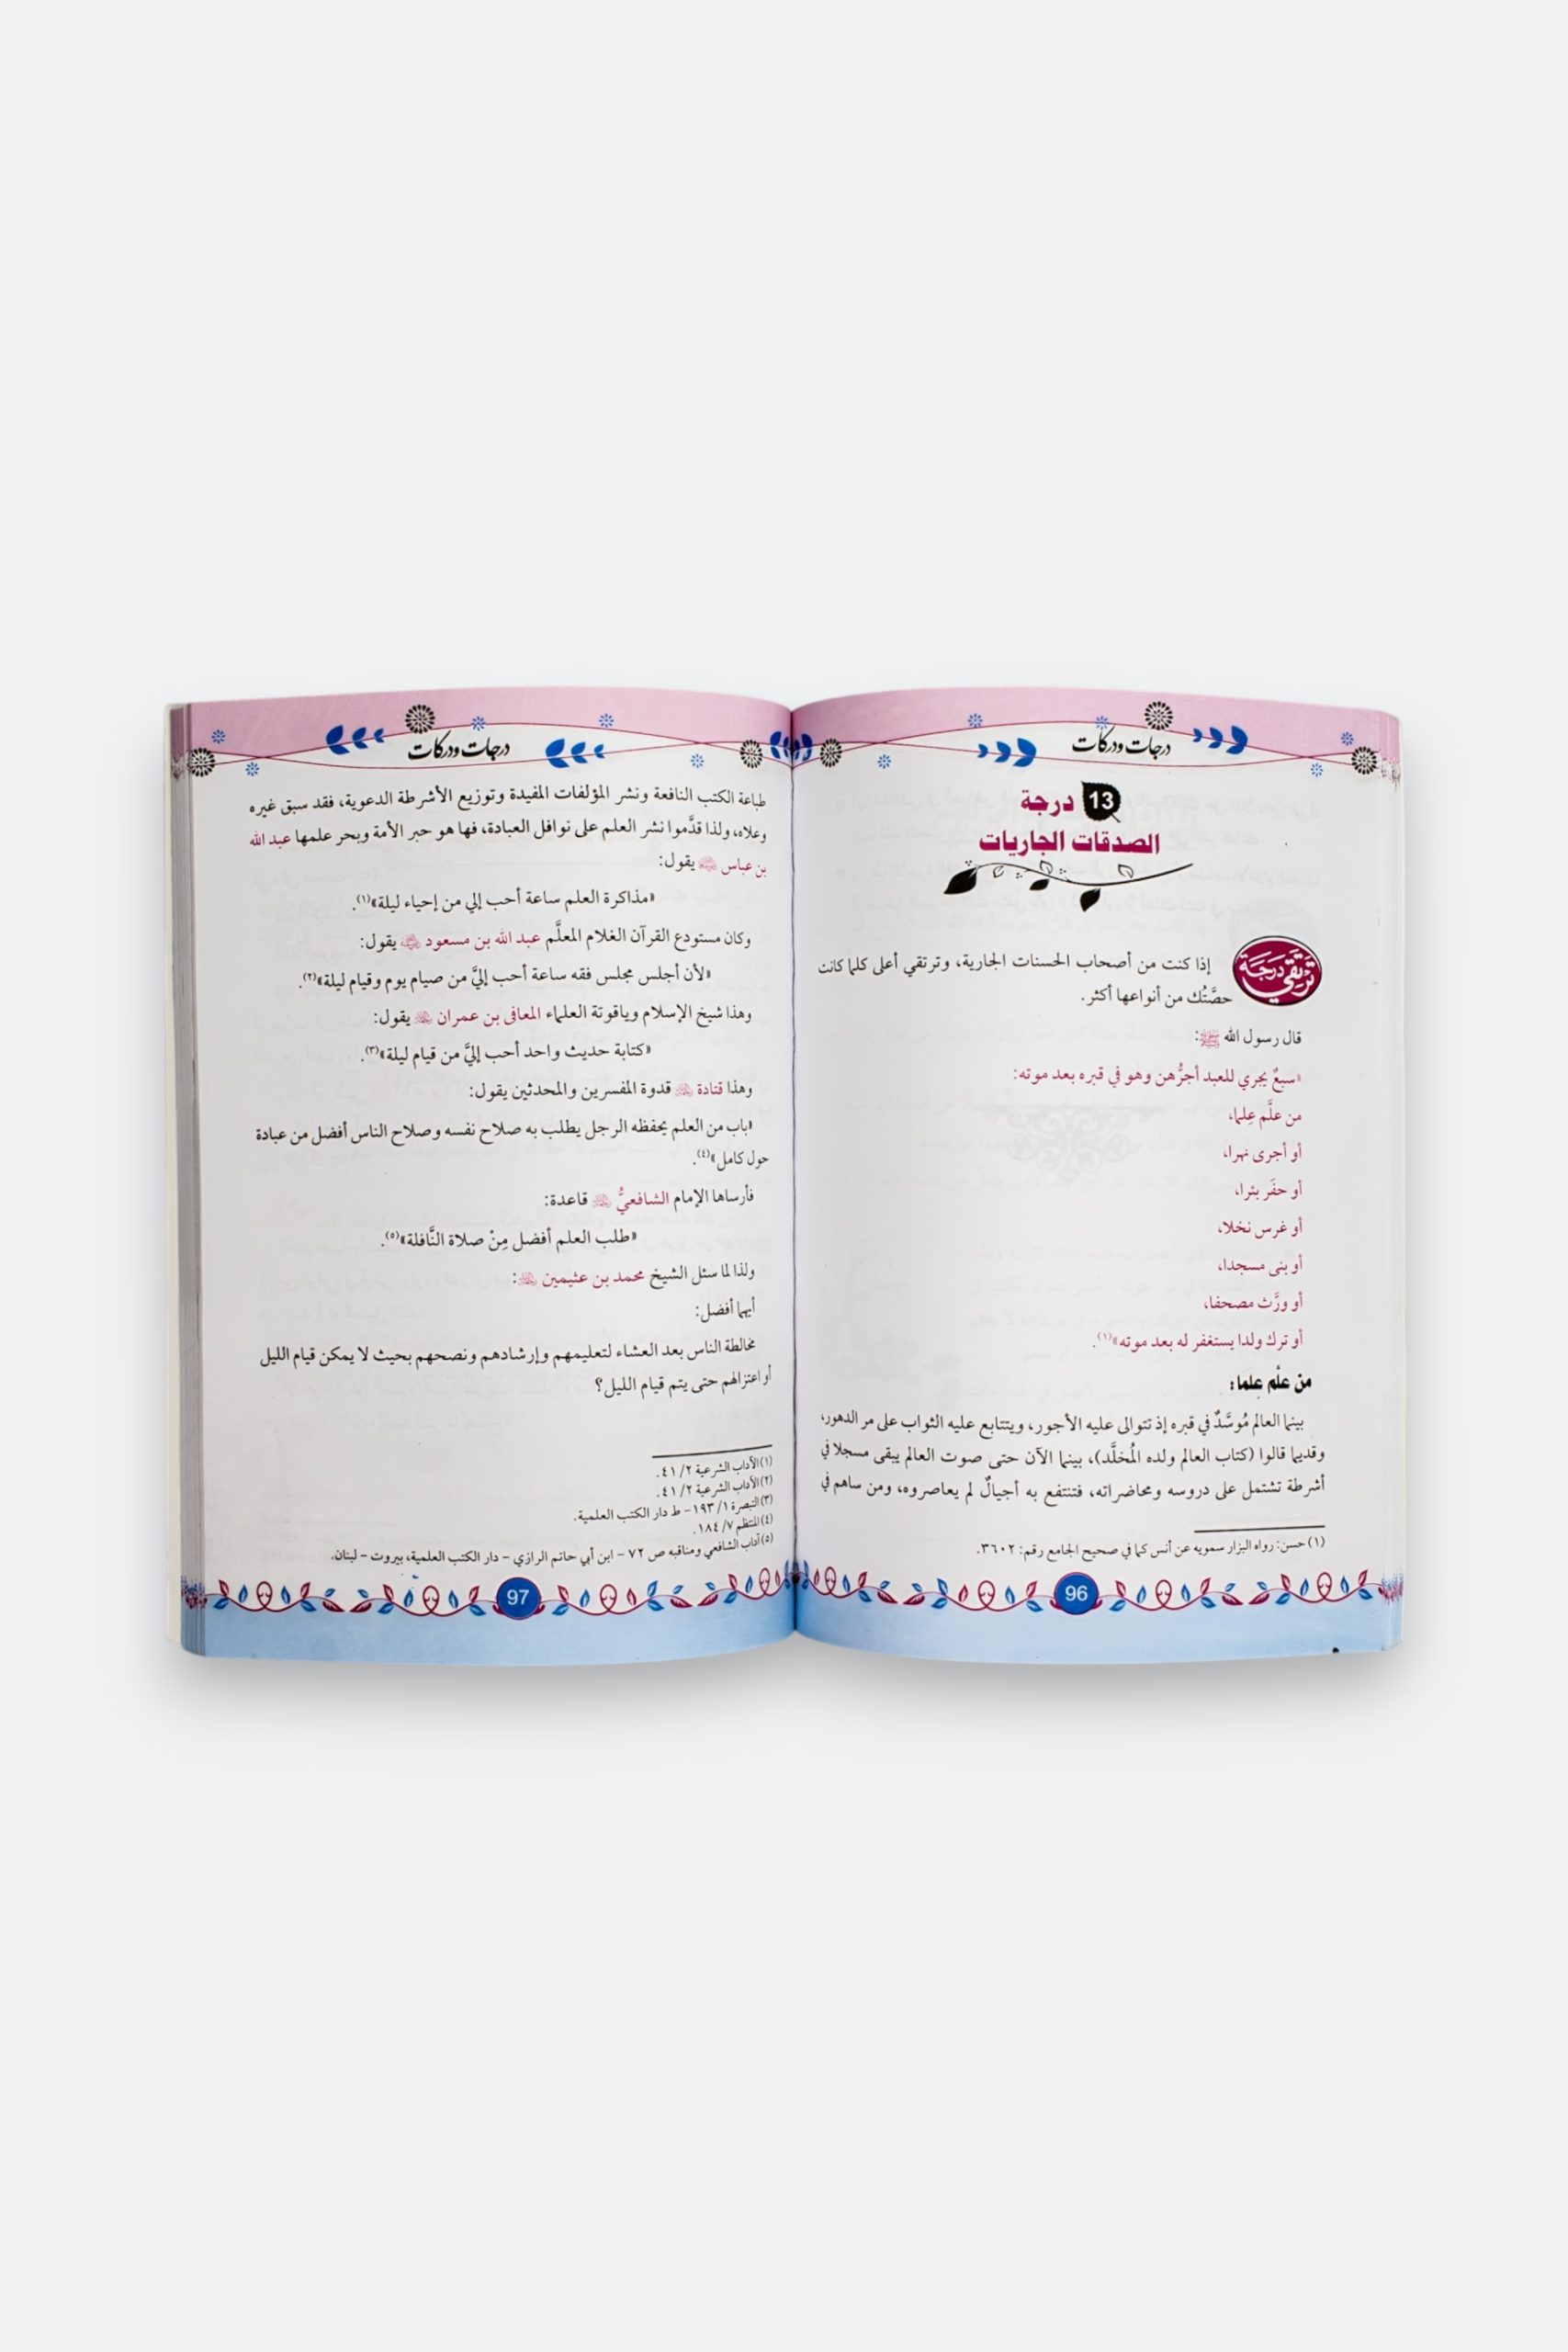 درجات ودركات
13 درجة
الصدقات الجاريات
ترتقي درجة
إذا كنت من أصحاب الحسنات الجارية، وترتقي أعلى كلما كانت
حصَّتُك من أنواعها أكثر.
قال رسول الله ﷺ:
«سبعٌ يجري للعبد أجرُهن وهو في قبره بعد موته:
من علَّم عِلما،
أو أجرى نهرا،
أو حفَر بئرا،
أو غرس نخلا،
أو بنى مسجدا،
أو ورَّث مصحفا،
أو ترك ولدا يستغفر له بعد موته»(١).
من علَّم علما:
بينما العالم مُوسَّدٌ في قبره إذ تتوالى عليه الأجور، ويتتابع عليه الثواب على مر الدهور،
وقديما قالوا (كتاب العالم ولده المُخلَّد)، بينما الآن حتى صوت العالم يبقى مسجلا في
أشرطة تشتمل على دروسه ومحاضراته، فتنتفع به أجيالٌ لم يعاصروه، ومن ساهم في
(١) حسن: رواه البزار سمويه عن أنس كما في صحيح الجامع رقم: ٣٦٠٢.
96
درجات ودركات
طباعة الكتب النافعة ونشر المؤلفات المفيدة وتوزيع الأشرطة الدعوية، فقد سبق غيره
وعلاه، ولذا قدَّموا نشر العلم على نوافل العبادة، فها هو حبر الأمة وبحر علمها عبد الله
بن عباس يقول:
«مذاكرة العلم ساعة أحب إلي من إحياء ليلة»(١).
وكان مستودع القرآن الغلام المعلَّم عبد الله بن مسعود يقول:
«لأن أجلس مجلس فقه ساعة أحب إليَّ من صيام يوم وقيام ليلة»(٢).
وهذا شيخ الإسلام وياقوتة العلماء المعافى بن عمران يقول:
«كتابة حديث واحد أحب إليَّ من قيام ليلة»(٣).
وهذا قتادة قدوة المفسرين والمحدثين يقول:
«باب من العلم يحفظه الرجل يطلب به صلاح نفسه وصلاح الناس أفضل من عبادة
حول كامل»(٤).
فأرساها الإمام الشافعيُّ قاعدة:
«طلب العلم أفضل مِنْ صلاة النَّافلة»(٥).
ولذا لما سئل الشيخ محمد بن عثيمين:
أيهما أفضل:
مخالطة الناس بعد العشاء لتعليمهم وإرشادهم ونصحهم بحيث لا يمكن قيام الليل
أو اعتزالهم حتى يتم قيام الليل؟
(١) الآداب الشرعية ٤١/٢.
(٢) الآداب الشرعية ٤١/٢.
(٣) التبصرة ١/ ١٩٣- ط دار الكتب العلمية.
(٤) المنتظم ٧/ ١٨٤.
(٥) آداب الشافعي ومناقبه ص ٧٢ - ابن أبي حاتم الرازي - دار الكتب العلمية، بيروت - لبنان.
97